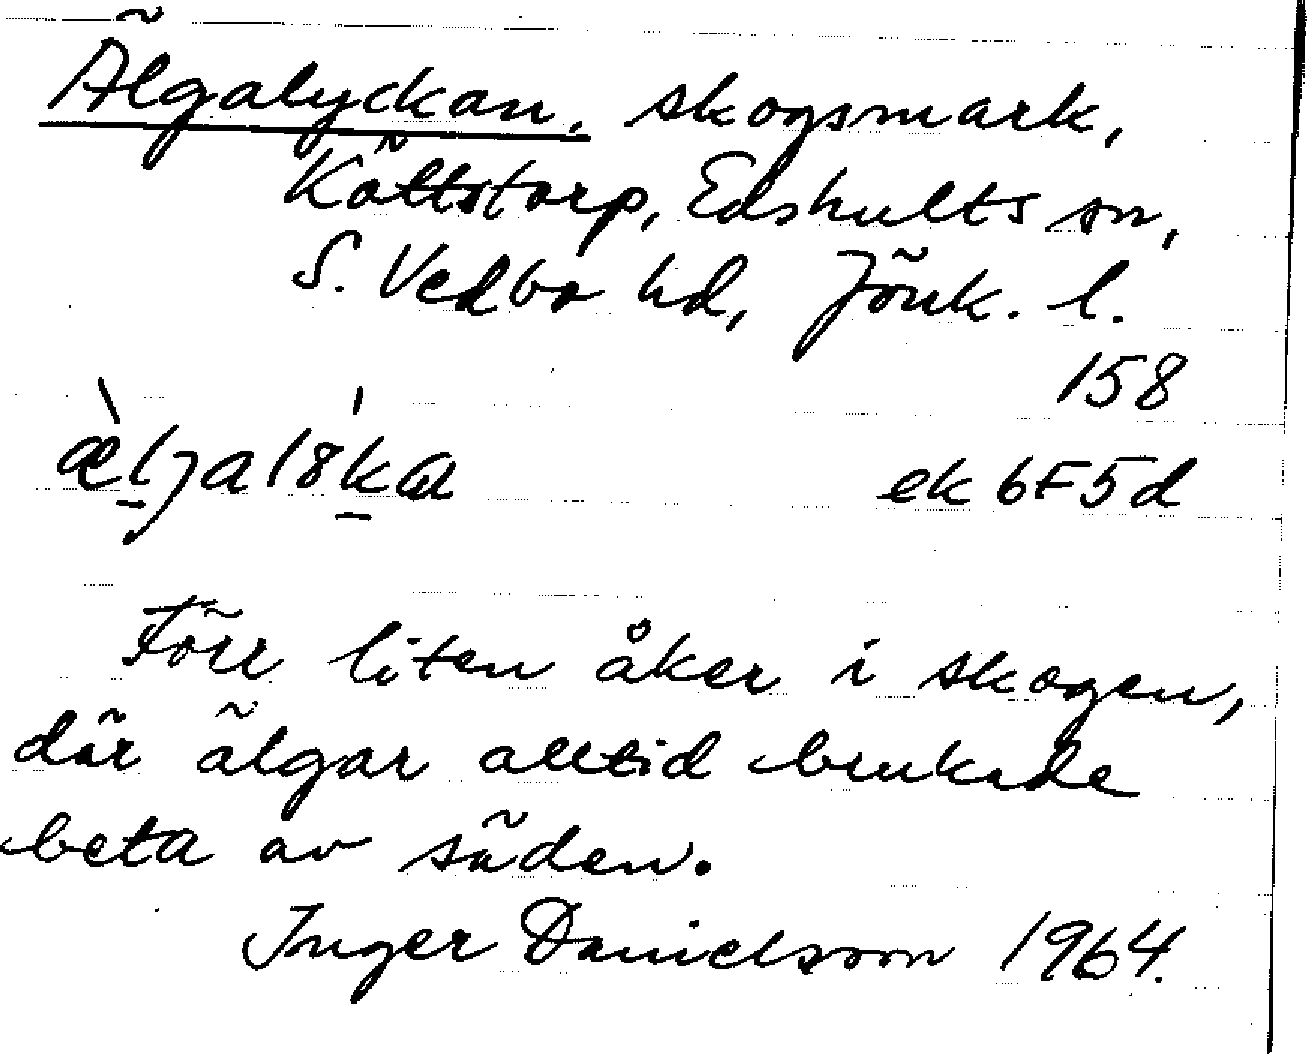 Älgalyckan, skogsmark,
Källstorp, Edshults sn,
S. Vedbo hd, Jönk. l.
158
æ̀ljal8ka ek 6F5d
Förr liten åker i skogen,
där älgar alltid brukade
beta av säden.
Inger Danielsson 1964.